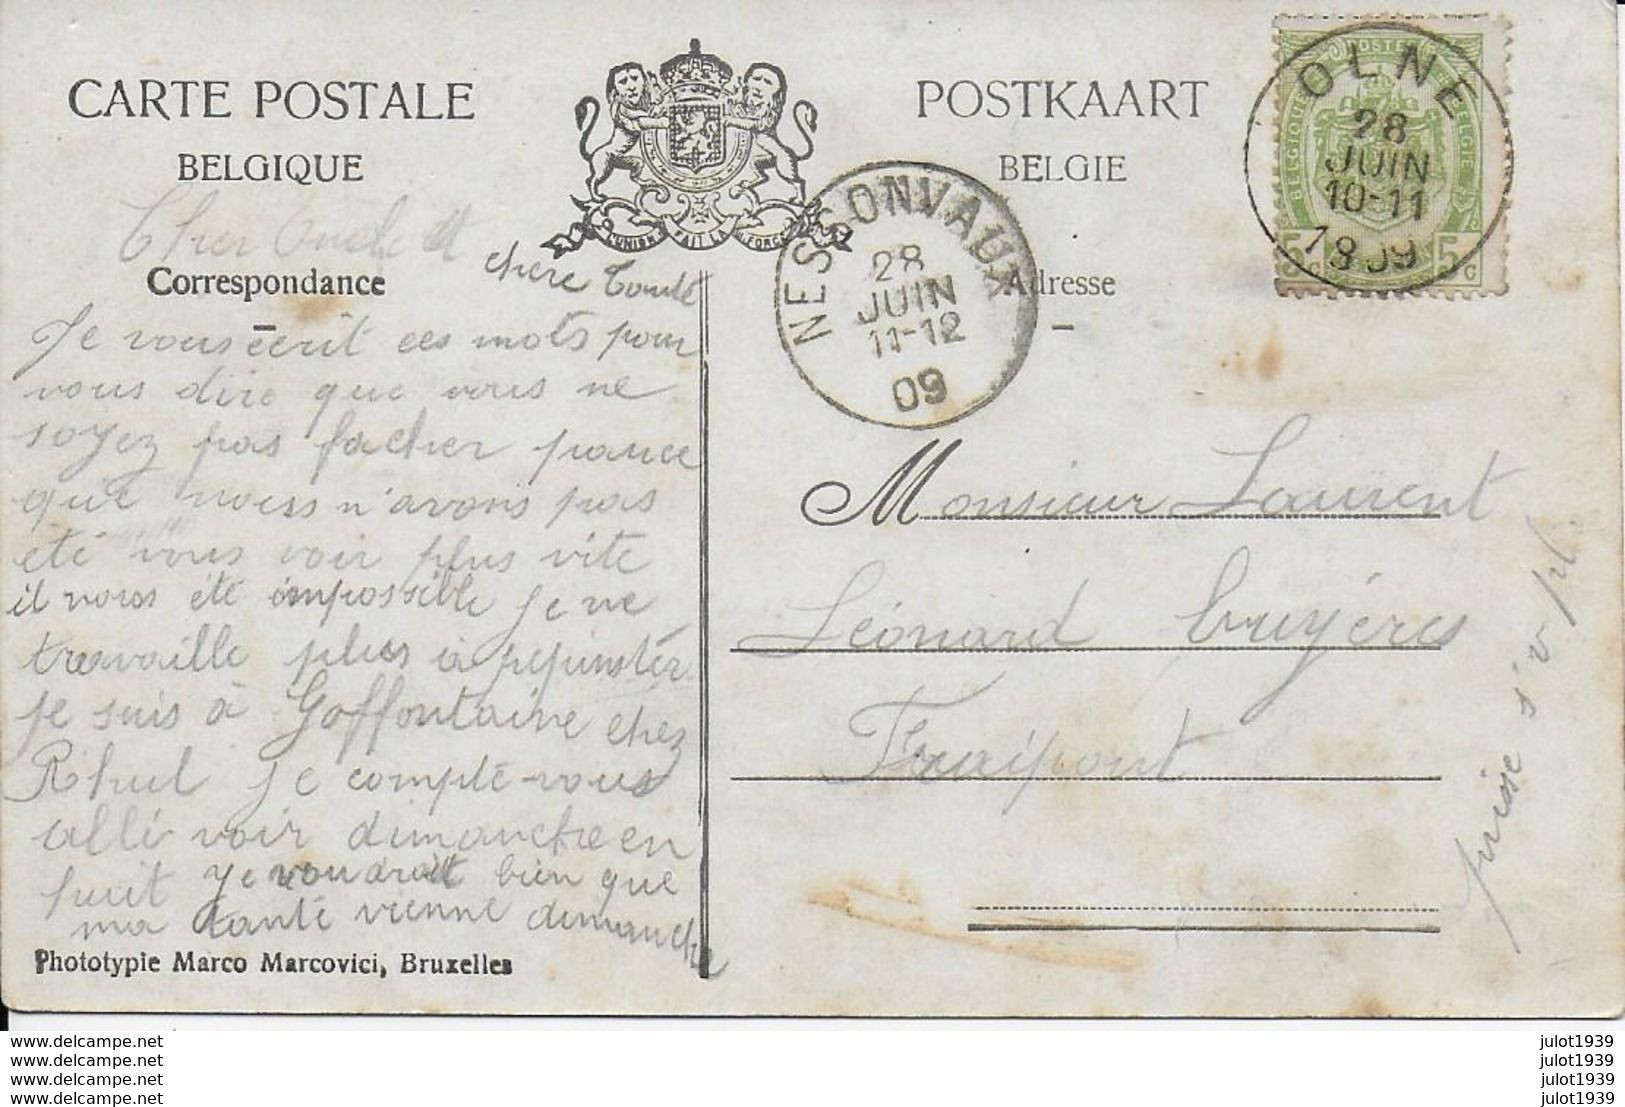 CARTE POSTALE
BELGIQUE
POSTKAART
BELGIE
L'UNION FAIT LA FORCE
POSTES
BELGIQUE BELGIE
5c 5c
OLNE
28
JUIN
10-11
1909
NESSONVAUX
28
JUIN
11-12
09
Cher Oncle et
chere Tante
Correspondance
Adresse
Je vous écrit ces mots pour
vous dire que vous ne
soyez pas facher parce
que nous n'avons pas
été vous voir plus vite
il nous été impossible je ne
travaille plus à pepinster
je suis à Goffontaine chez
Rhul je compte vous
allé voir dimanche en
huit je voudrait bien que
ma tante vienne dimanche
Monsieur Laurent
Léonard bruyéres
Fraipont
s'v pl
Phototypie Marco Marcovici, Bruxelles
www.delcampe.net
www.delcampe.net
www.delcampe.net
www.delcampe.net
julot1939
julot1939
julot1939
julot1939